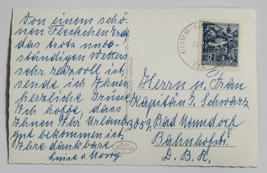 Von einem schö-
nen Fleckchen Erde
das trotz unbe-
ständigen Wetters
sehr reizvoll ist,
sende ich Ihnen
herzliche Grüsse
Ich hoffe, dass
Ihnen Ihr Urlaub
gut bekommen ist,
Ihre dankbare
Luise
Herrn u. Frau
Kapitän G. Schwarz
3052 Bad Nenndorf
Bahnhofstr.
D.B.R.